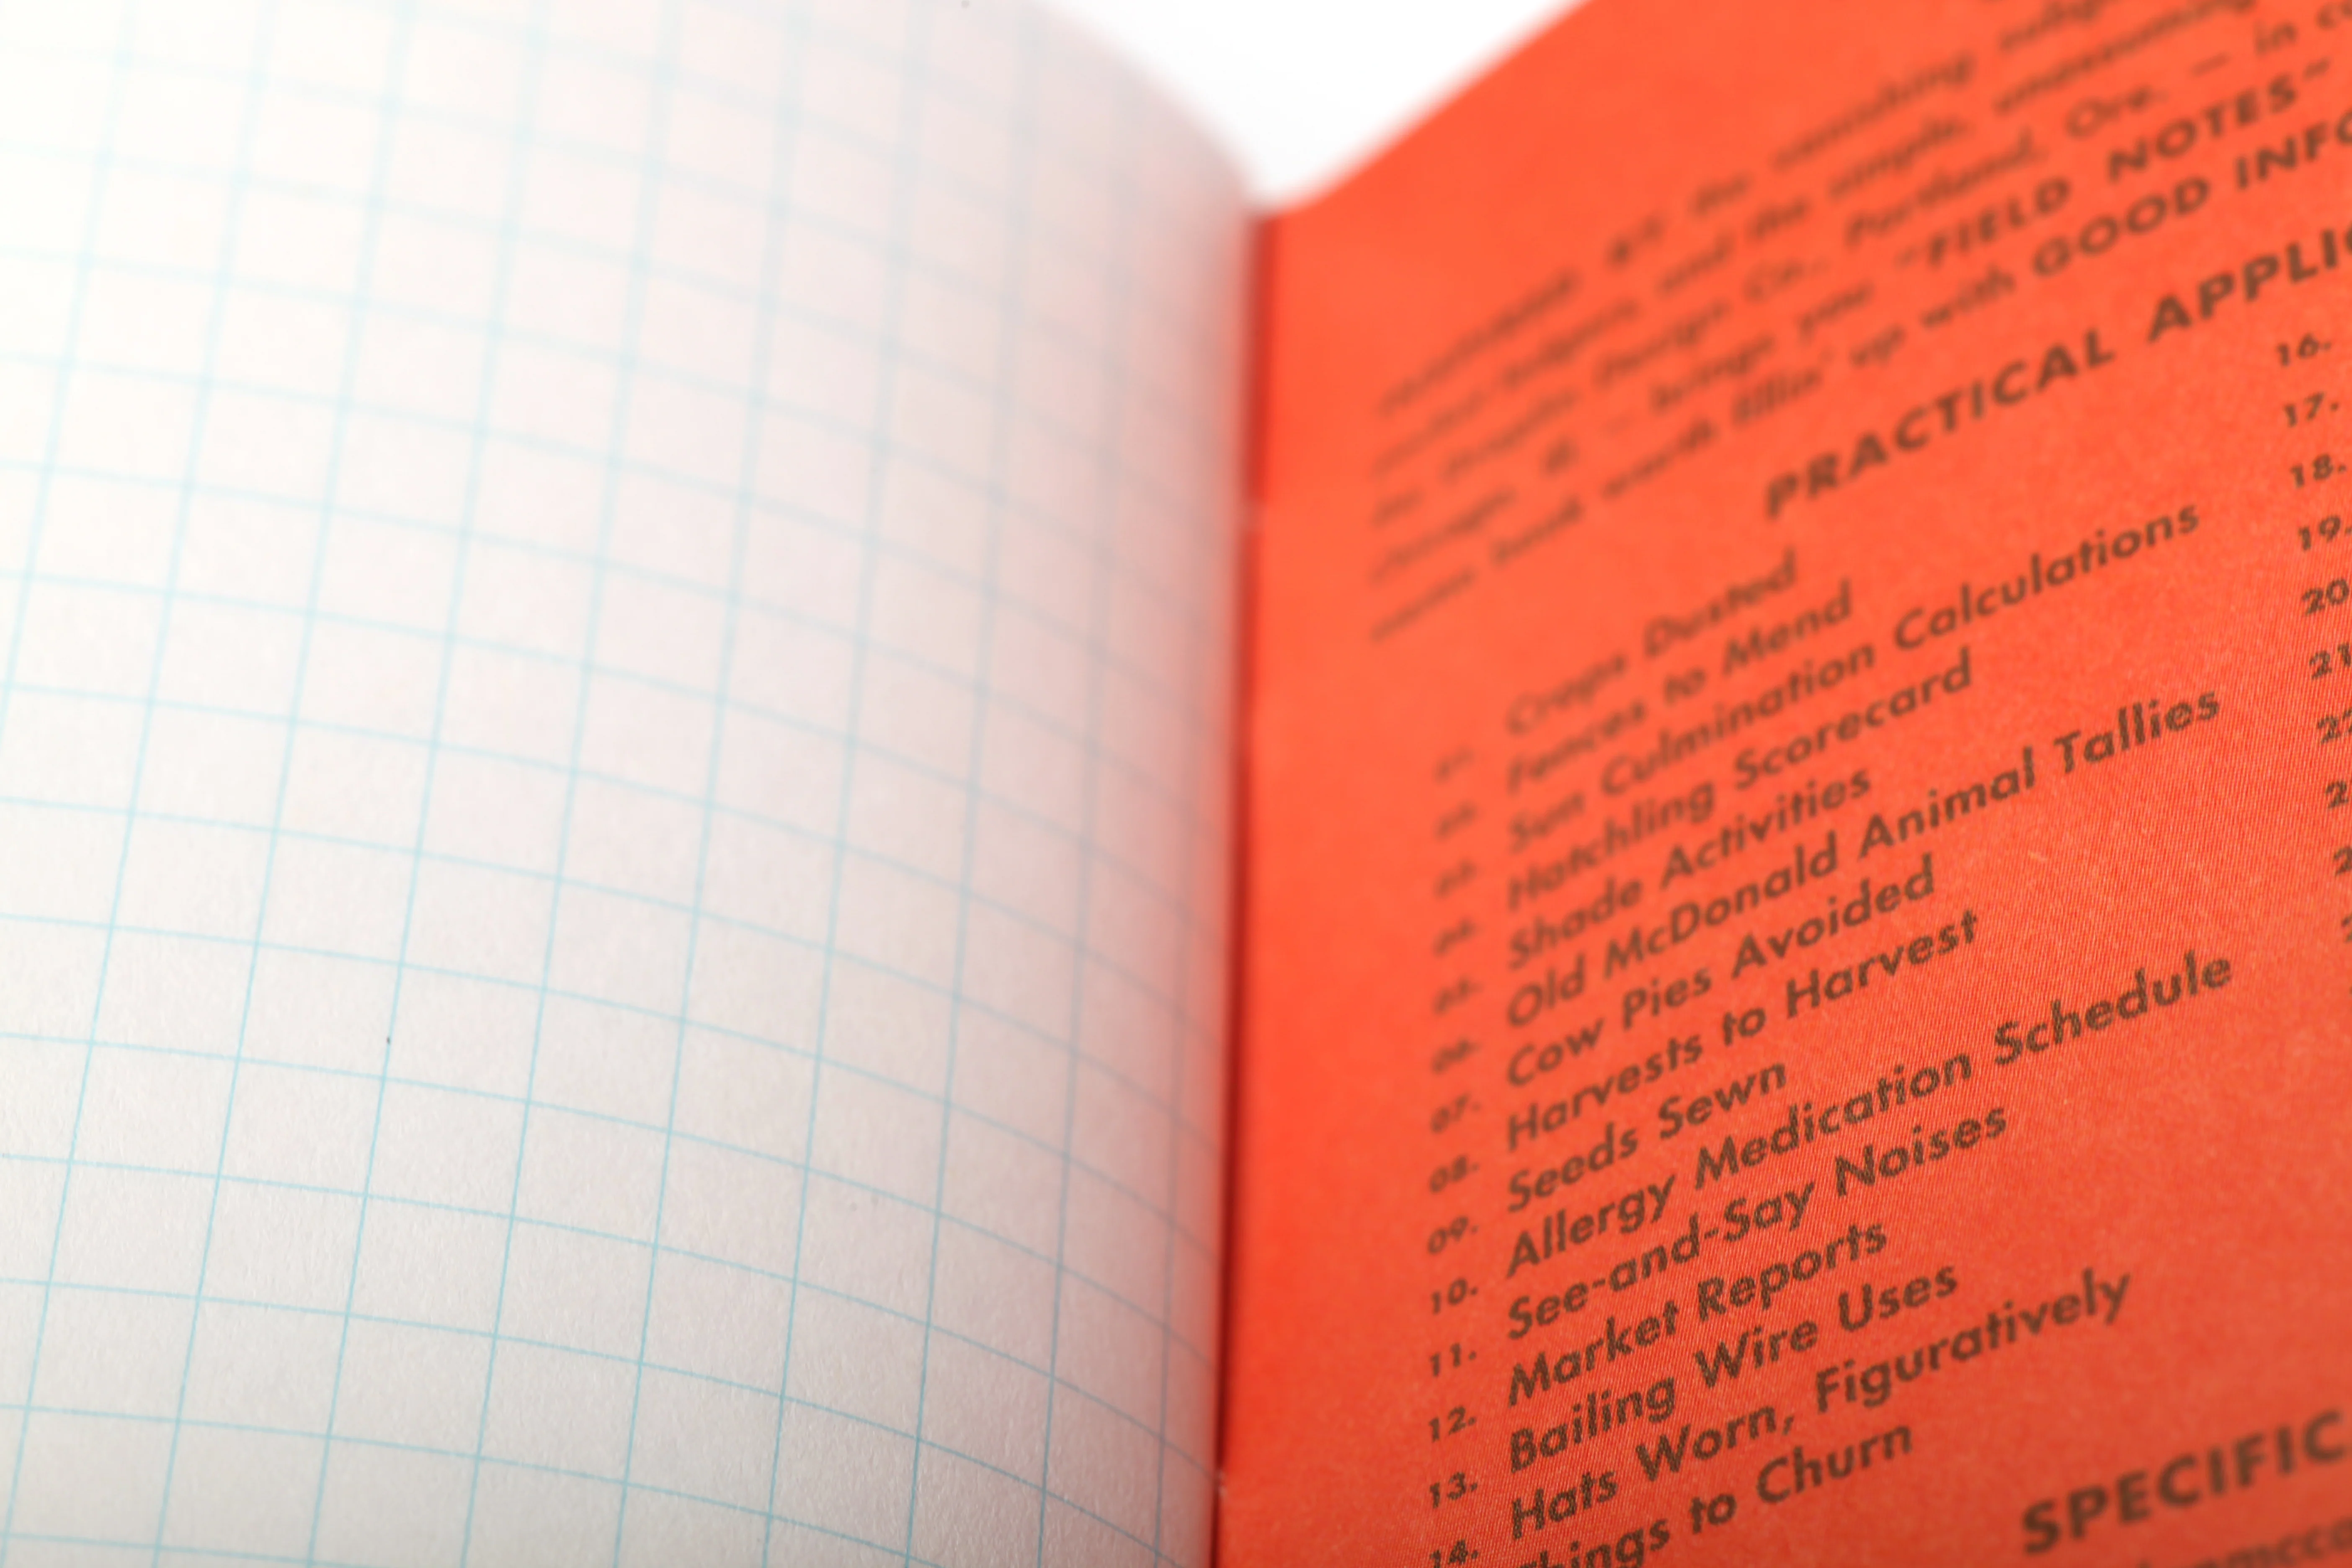 the vanishing
and the simple, unassuming
Design Co., Portland, Ore. — in
— brings you "FIELD NOTES"
book worth fillin' up with GOOD
PRACTICAL
01. Crops Dusted
02. Fences to Mend
03. Sun Culmination Calculations
04. Hatchling Scorecard
05. Shade Activities
06. Old McDonald Animal Tallies
07. Cow Pies Avoided
08. Harvests to Harvest
09. Seeds Sewn
10. Allergy Medication Schedule
11. See-and-Say Noises
12. Market Reports
13. Bailing Wire Uses
14. Hats Worn, Figuratively
Things to Churn
16.
17.
18.
19.
20
21
SPECIFIC